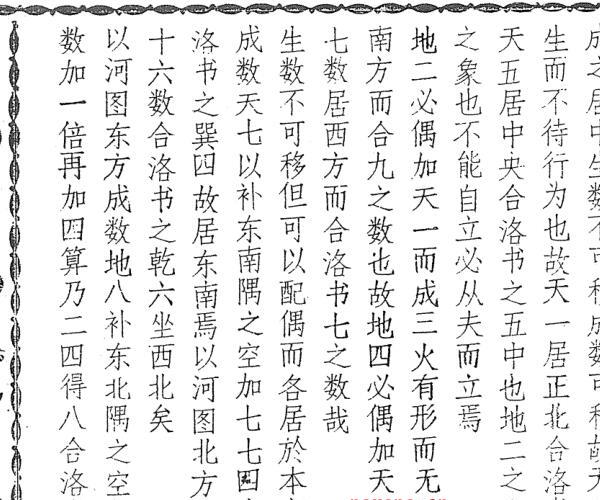 成之居中生数不可移成数可移故天
生而不待行为也故天一居正北合洛
天五居中央合洛书之五中也地二之
之象也不能自立必从夫而立焉
地二必偶加天一而成三火有形而无
南方而合九之数也故地四必偶加天
七数居西方而合洛书七之数哉
生数不可移但可以配偶而各居於本
成数天七以补东南隅之空加七七四
洛书之巽四故居东南焉以河图北方
十六数合洛书之乾六坐西北矣
以河图东方成数地八补东北隅之空
数加一倍再加四算乃二四得八合洛